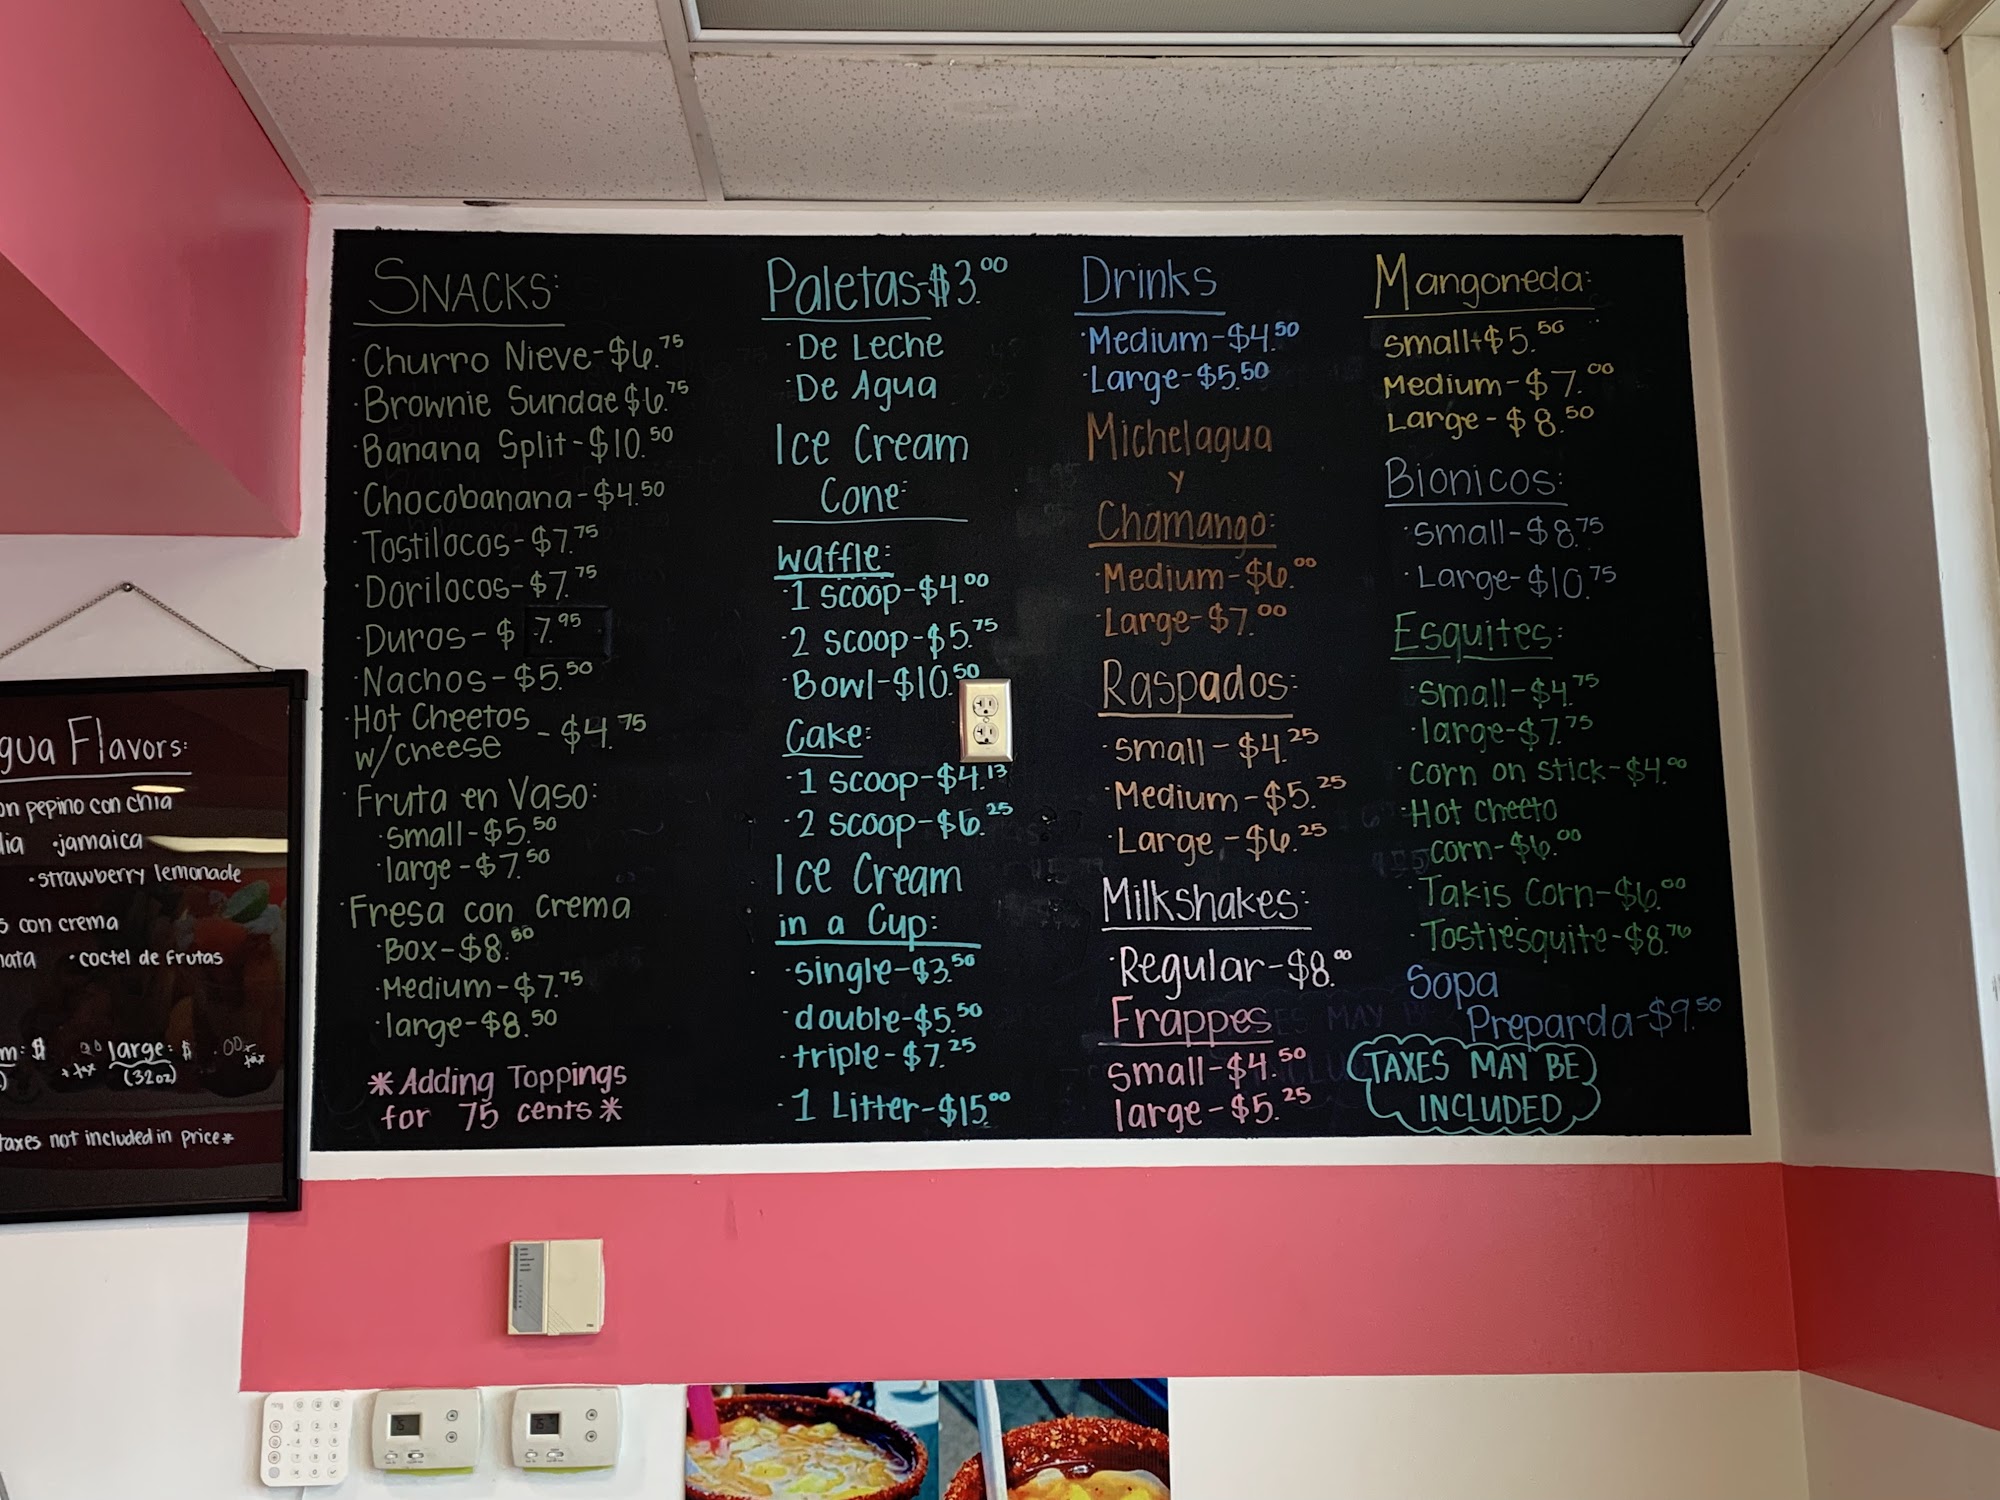 SNACKS:
· Churro Nieve-$6.75
· Brownie Sundae $6.75
· Banana Split-$10.50
· Chocobanana-$4.50
· Tostilocos-$7.75
· Dorilocos-$7.75
· Duros-$ 7.95
· Nachos-$5.50
· Hot Cheetos
w/cheese - $4.75
· Fruta en Vaso:
· small-$5.50
· large-$7.50
· Fresa con crema
· Box-$8.50
· Medium-$7.75
· large-$8.50
* Adding Toppings
for 75 cents *
Paletas-$3.00
· De Leche
· De Agua
Ice Cream
Cone:
waffle:
· 1 scoop-$4.00
· 2 scoop-$5.75
· Bowl-$10.50
Cake:
· 1 scoop-$4.13
· 2 scoop-$6.25
Ice Cream
in a Cup:
· single-$3.50
· double-$5.50
· triple-$7.25
· 1 Litter-$15.00
Drinks
· Medium-$4.50
· Large-$5.50
Michelagua
y
Chamango:
· Medium-$6.00
· Large-$7.00
Raspados:
· small-$4.25
· Medium-$5.25
· Large-$6.25
Milkshakes:
· Regular-$8.00
Frappes
small-$4.50
large-$5.25
Mangoneda:
small-$5.50
Medium-$7.00
Large-$8.50
Bionicos:
· small-$8.75
· Large-$10.75
Esquites:
· small-$4.75
· large-$7.75
· corn on stick-$4.00
· Hot cheeto
corn-$6.00
· Takis Corn-$6.00
· Tostiesquite-$8.76
Sopa
Preparda-$9.50
TAXES MAY BE
INCLUDED
gua Flavors:
on pepino con chia
· jamaica
· strawberry lemonade
con crema
· coctel de frutas
large: $ .00 + tax
(32oz)
taxes not included in price*
ring